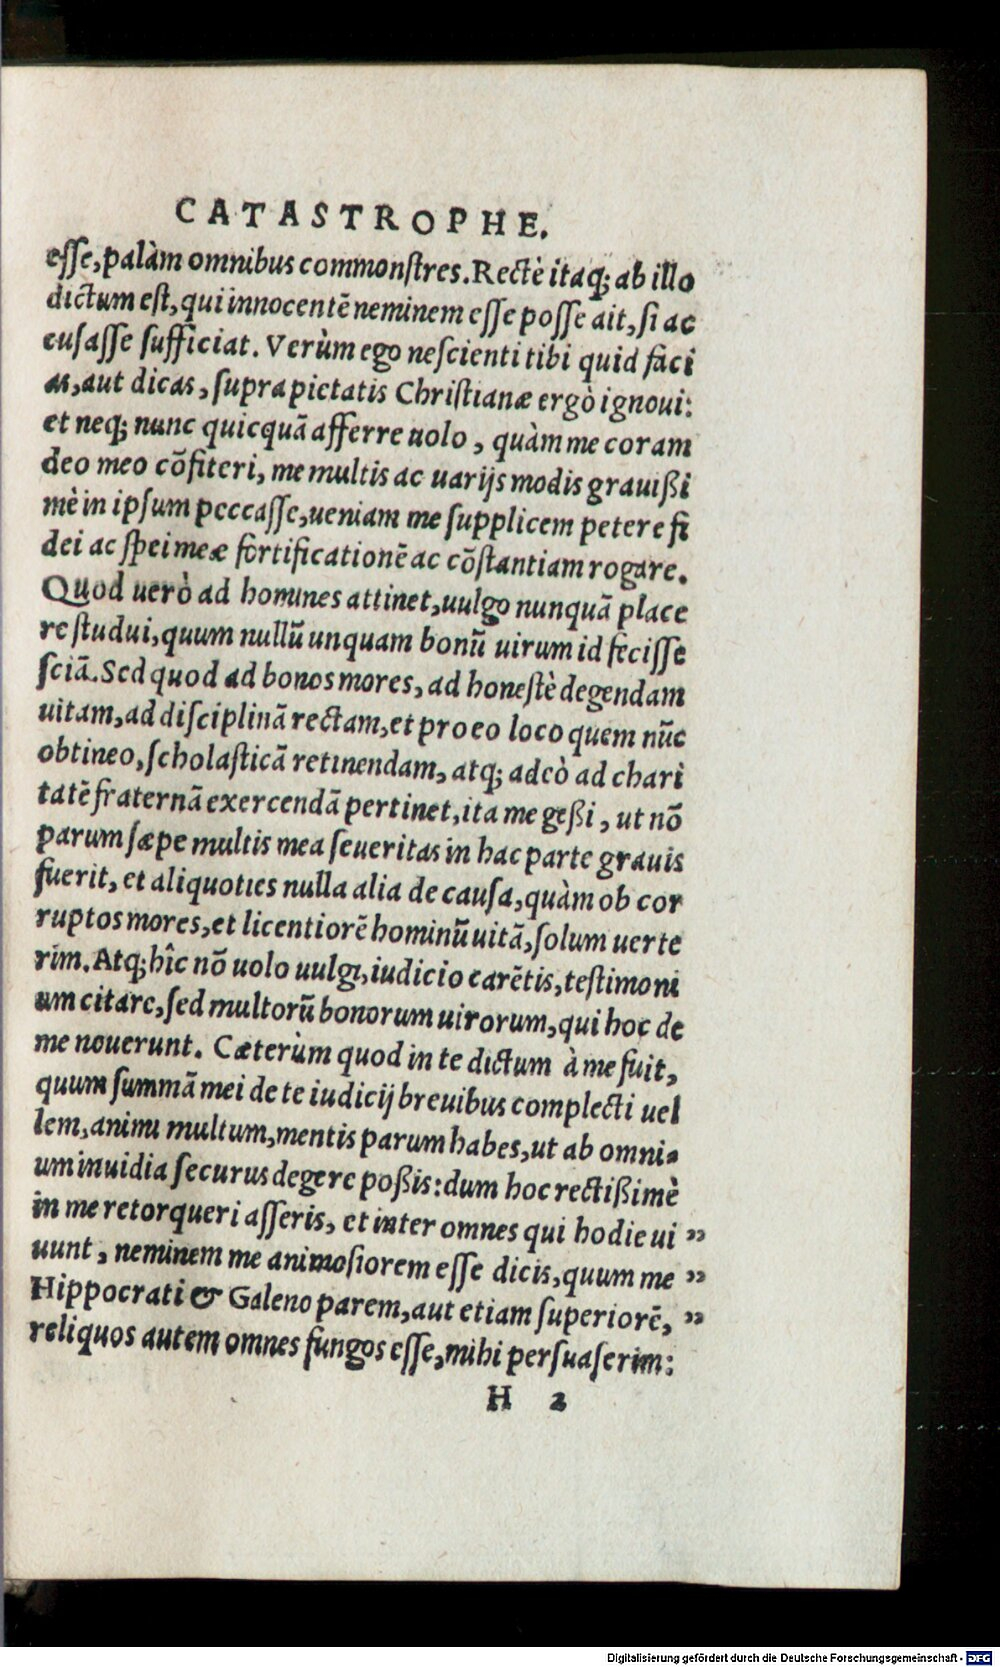 CATASTROPHE.
esse, palàm omnibus commonstres. Rectè itaq; ab illo
dictum est, qui innocentē neminem esse posse ait, si ac
cusasse sufficiat. Verùm ego nescienti tibi quid faci
as, aut dicas, supra pietatis Christianæ ergò ignoui:
et neq; nunc quicquā afferre uolo, quàm me coram
deo meo cōfiteri, me multis ac uarijs modis grauißi
mè in ipsum peccasse, ueniam me supplicem petere fi
dei ac spei meæ fortificationē ac cōstantiam rogare.
Quod uerò ad homines attinet, uulgo nunquā place
re studui, quum nullū unquam bonū uirum id fecisse
sciā. Sed quod ad bonos mores, ad honestè degendam
uitam, ad disciplinā rectam, et pro eo loco quem nūc
obtineo, scholasticā retinendam, atq; adeò ad chari
tatē fraternā exercendā pertinet, ita me geßi, ut nō
parum sæpe multis mea seueritas in hac parte grauis
fuerit, et aliquoties nulla alia de causa, quàm ob cor
ruptos mores, et licentiorē hominū uitā, solum uerte
rim. Atq; hîc nō uolo uulgi, iudicio carētis, testimoni
um citare, sed multorū bonorum uirorum, qui hoc de
me nouerunt. Cæterùm quod in te dictum à me fuit,
quum summā mei de te iudicij breuibus complecti uel
lem, animi multum, mentis parum habes, ut ab omni-
um inuidia securus degere poßis: dum hoc rectißimè
in me retorqueri asseris, et inter omnes qui hodie ui ”
uunt, neminem me animosiorem esse dicis, quum me ”
Hippocrati & Galeno parem, aut etiam superiorē, ”
reliquos autem omnes fungos esse, mihi persuaserim:
H 2
Digitalisierung gefördert durch die Deutsche Forschungsgemeinschaft - DFG